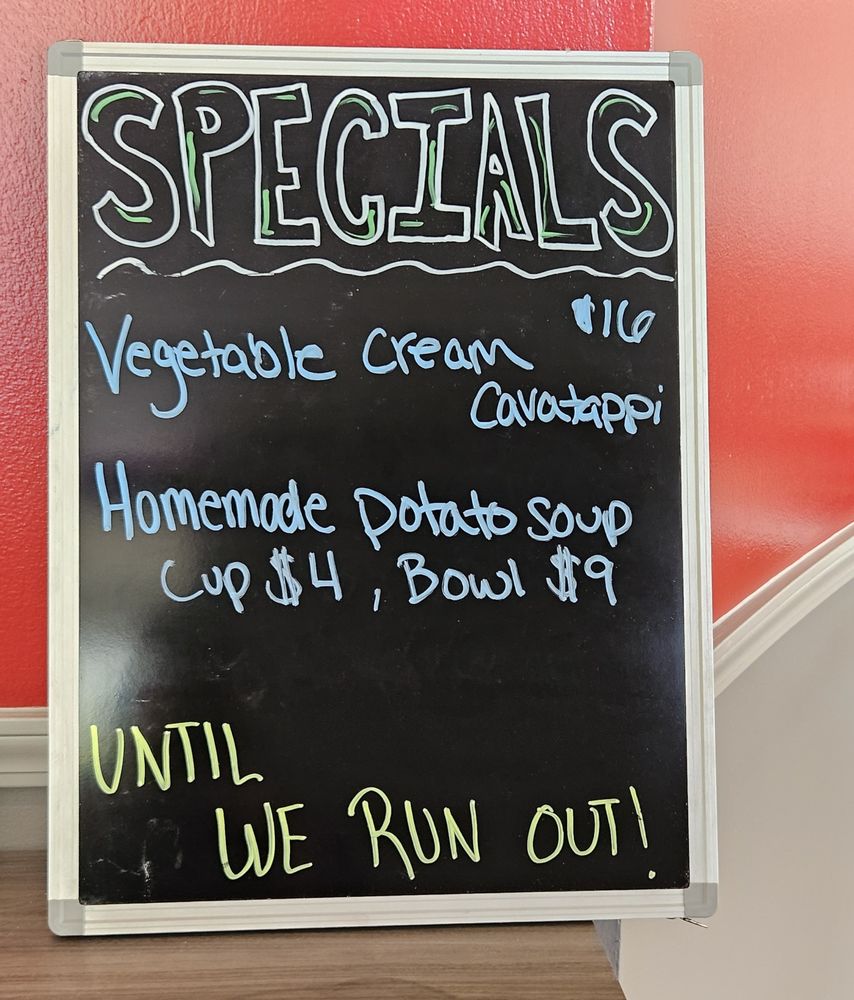 SPECIALS
$16
Vegetable Cream
Cavatappi
Homemade potato soup
Cup $4, Bowl $9
UNTIL
WE RUN OUT!